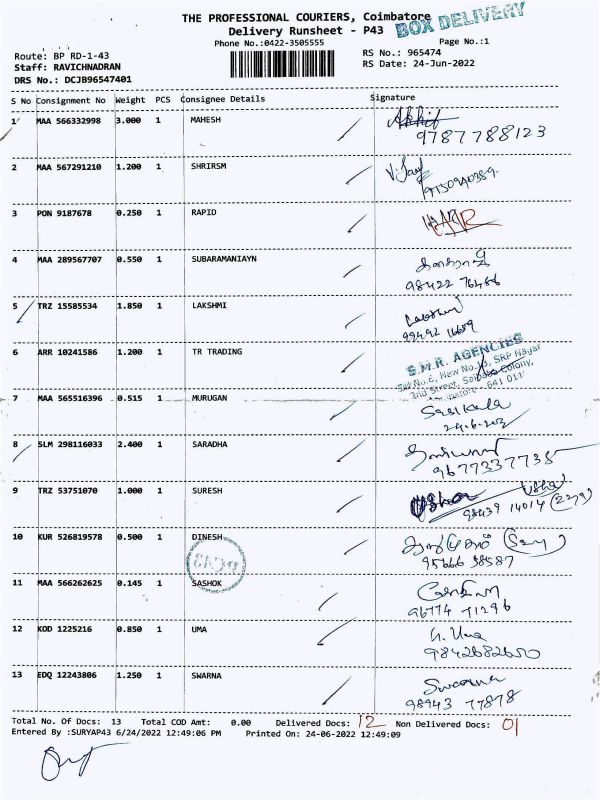 THE PROFESSIONAL COURIERS, Coimbatore
BOX DELIVERY
Delivery Runsheet - P43
Phone No.:0422-3505555
Page No.:1
Route: BP RD-1-43
RS No.: 965474
Staff: RAVICHNADRAN
RS Date: 24-Jun-2022
DRS No.: DCJB96547401
S No Consignment No Weight PCS Consignee Details Signature
1 MAA 566332998 3.000 1 MAHESH
9787788123
2 MAA 567291210 1.200 1 SHRIRSM
3 PON 9187678 0.250 1 RAPID
4 MAA 289567707 0.550 1 SUBARAMANIAYN
98422 76486
5 TRZ 15585534 1.850 1 LAKSHMI
6 ARR 10241586 1.200 1 TR TRADING
S.M.R. AGENCIES
New No. SRP Nagar
Street, Colony,
641 011
7 MAA 565516396 0.515 1 MURUGAN
Sasikala
8 SLM 298116033 2.400 1 SARADHA
9677337735
9 TRZ 53751070 1.000 1 SURESH
Usha
98439 14014
10 KUR 526819578 0.500 1 DINESH
95666 38587
11 MAA 566262625 0.145 1 SASHOK
96774 71296
12 KOD 1225216 0.850 1 UMA
G. Uma
9842682650
13 EDQ 12243806 1.250 1 SWARNA
Swarna
98943 77878
Total No. Of Docs: 13 Total COD Amt: 0.00 Delivered Docs: 12 Non Delivered Docs: 01
Entered By :SURYAP43 6/24/2022 12:49:06 PM Printed On: 24-06-2022 12:49:09